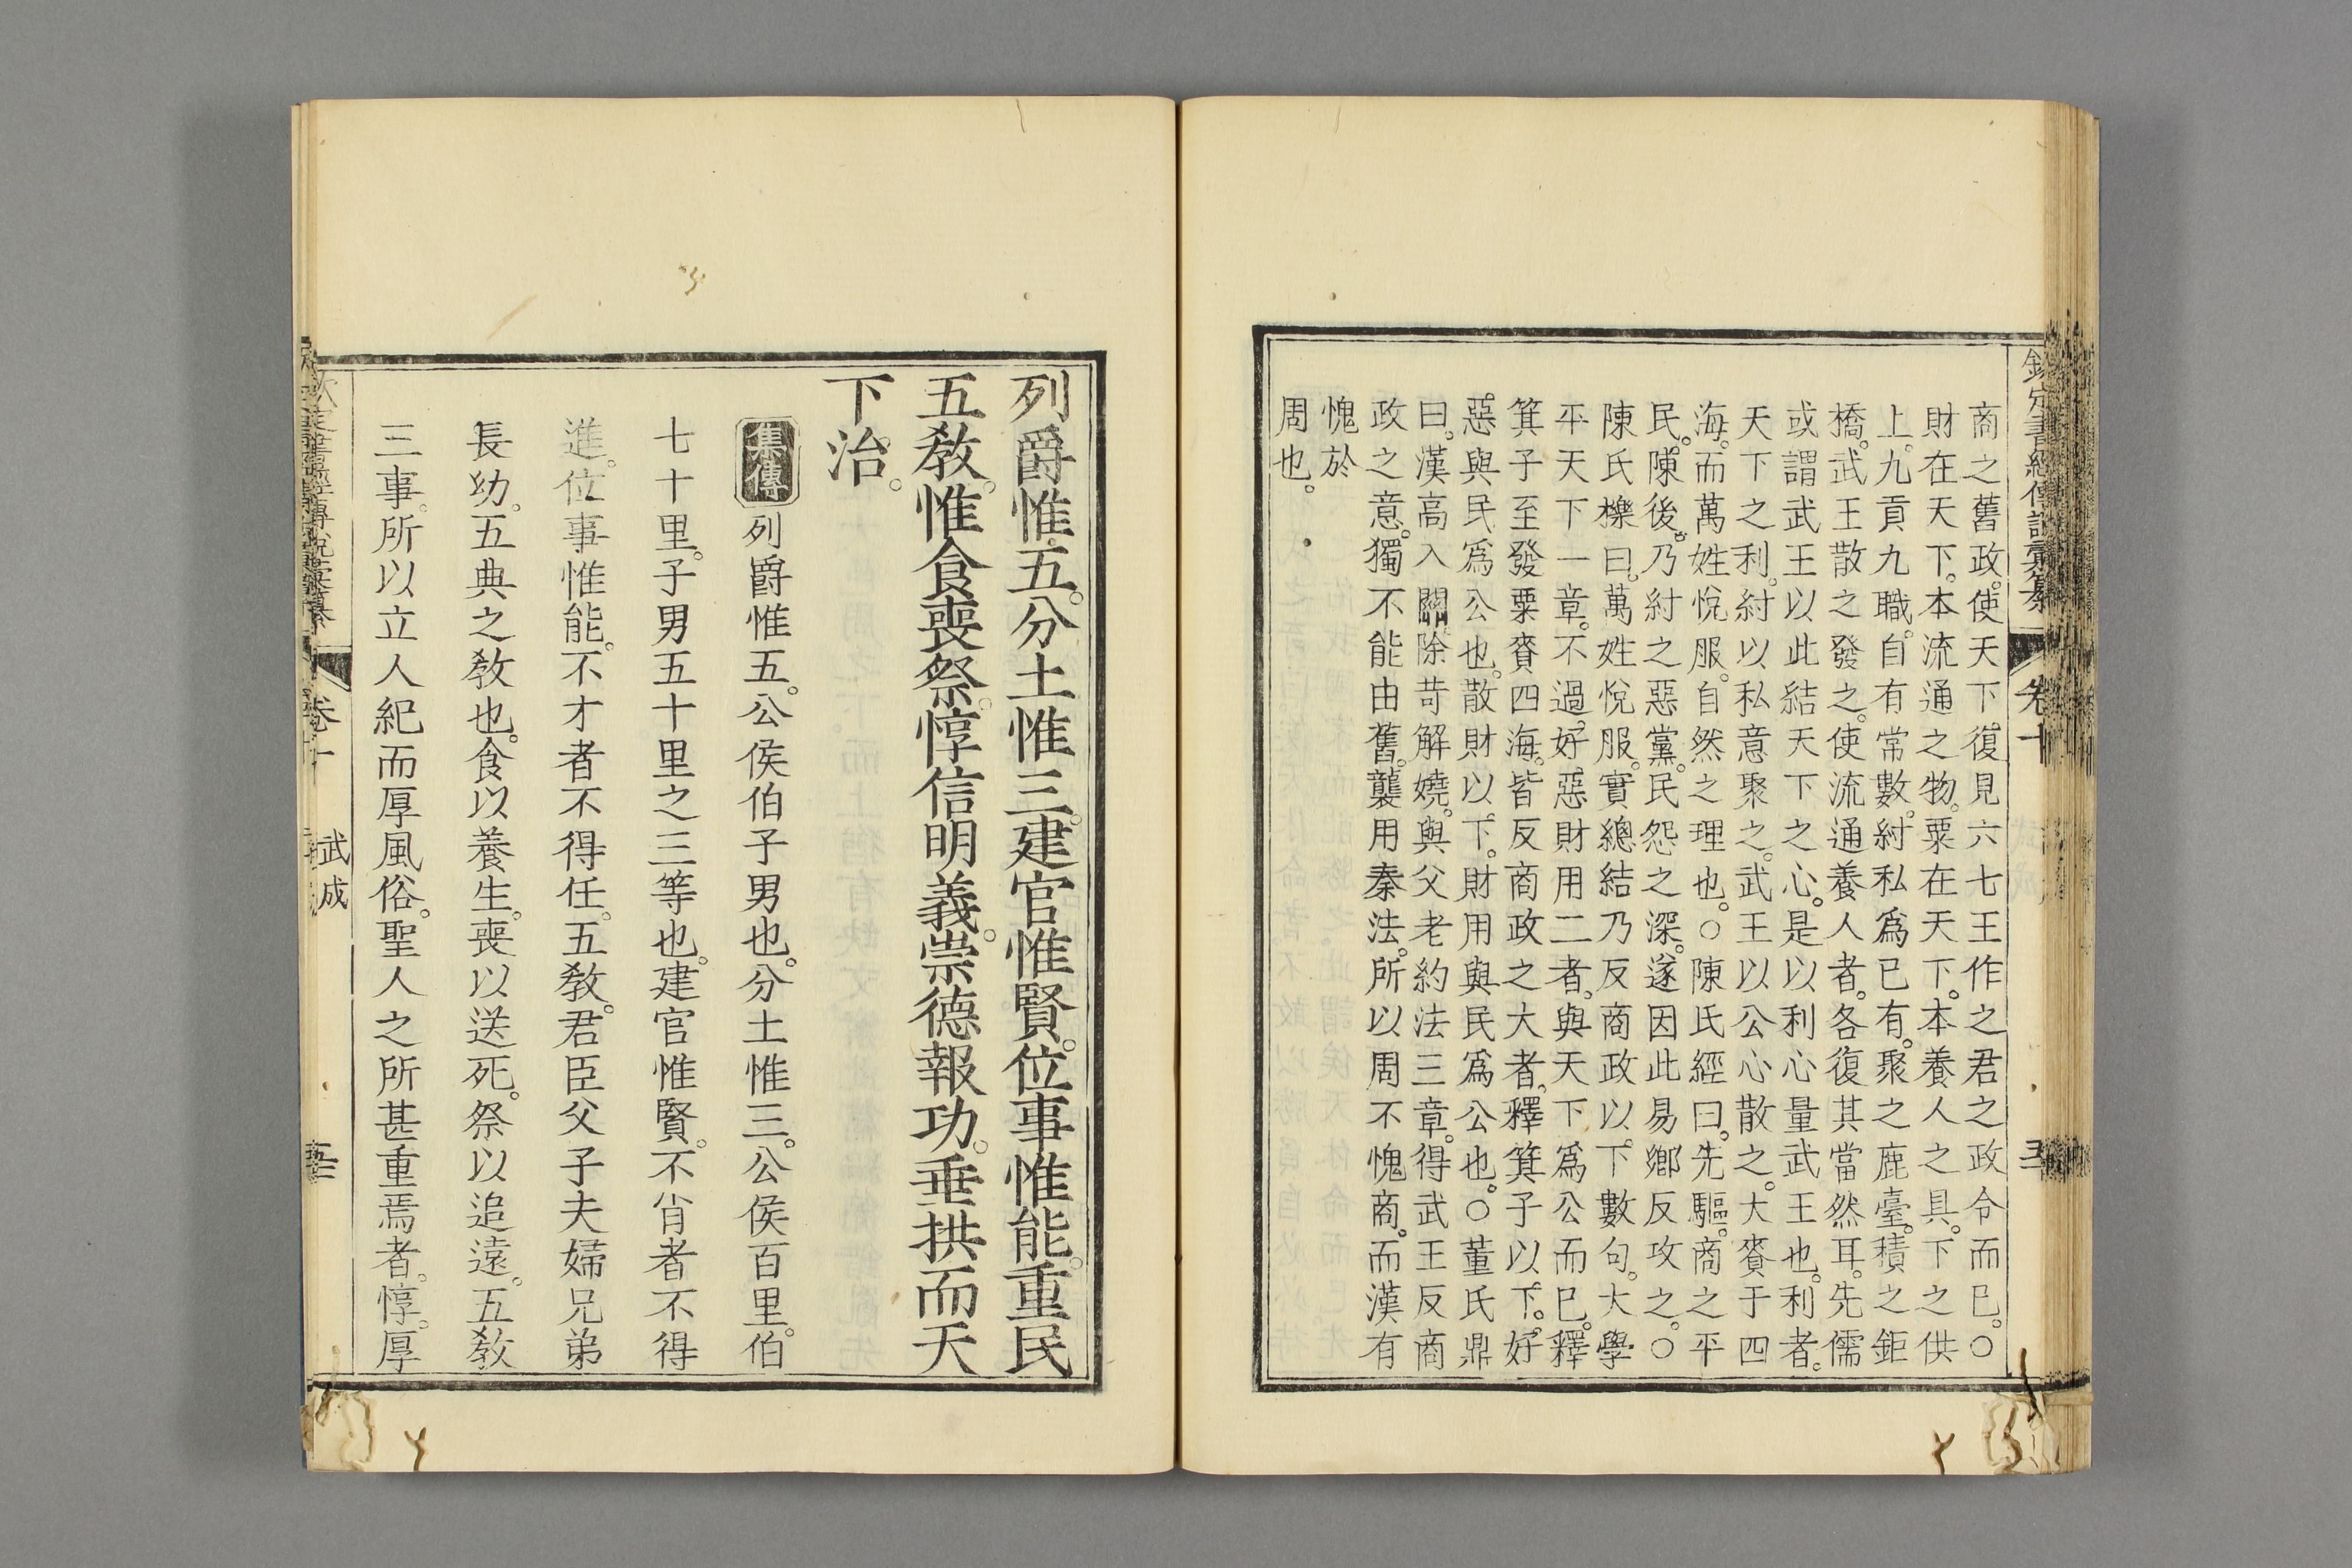 欽定書經傳說彙纂 卷十
商之舊政。使天下。復見六七王作之君之政令而已。○
財在天下。本流通之物。粟在天下。本養人之具。下之供
上。九貢九職。自有常數。紂私爲已有。聚之鹿臺。積之鉅
橋。武王散之發之。使流通養人者。各復其當然耳。先儒
或謂武王以此結天下之心。是以利心量武王也。利者。
天下之利。紂以私意聚之。武王以公心散之。大賚于四
海。而萬姓悅服。自然之理也。○陳氏經曰。先驅。商之平
民。陳後。乃紂之惡黨。民怨之深。遂因此易鄉反攻之。○
陳氏櫟曰。萬姓悅服。實總結乃反商政以下。數句。大學
平天下一章。不過好惡財用二者。與天下爲公而已。釋
箕子至發粟賚四海。皆反商政之大者。釋箕子以下。好
惡與民爲公也。散財以下。財用與民爲公也。○董氏鼎
曰。漢高入關。除苛解嬈。與父老約法三章。得武王反商
政之意。獨不能由舊。襲用秦法。所以周不愧商。而漢有
愧於
周也。
列爵惟五。分土惟三。建官惟賢。位事惟能。重民
五敎。惟食喪祭。惇信明義。崇德報功。垂拱而天
下治。
集傳 列爵惟五。公侯伯子男也。分土惟三。公侯百里。伯
七十里。子男五十里之三等也。建官惟賢。不肖者不得
進。位事惟能。不才者不得任。五敎。君臣父子夫婦兄弟
長幼。五典之敎也。食以養生。喪以送死。祭以追遠。五敎
三事。所以立人紀而厚風俗。聖人之所甚重焉者。惇。厚
卷十 武成